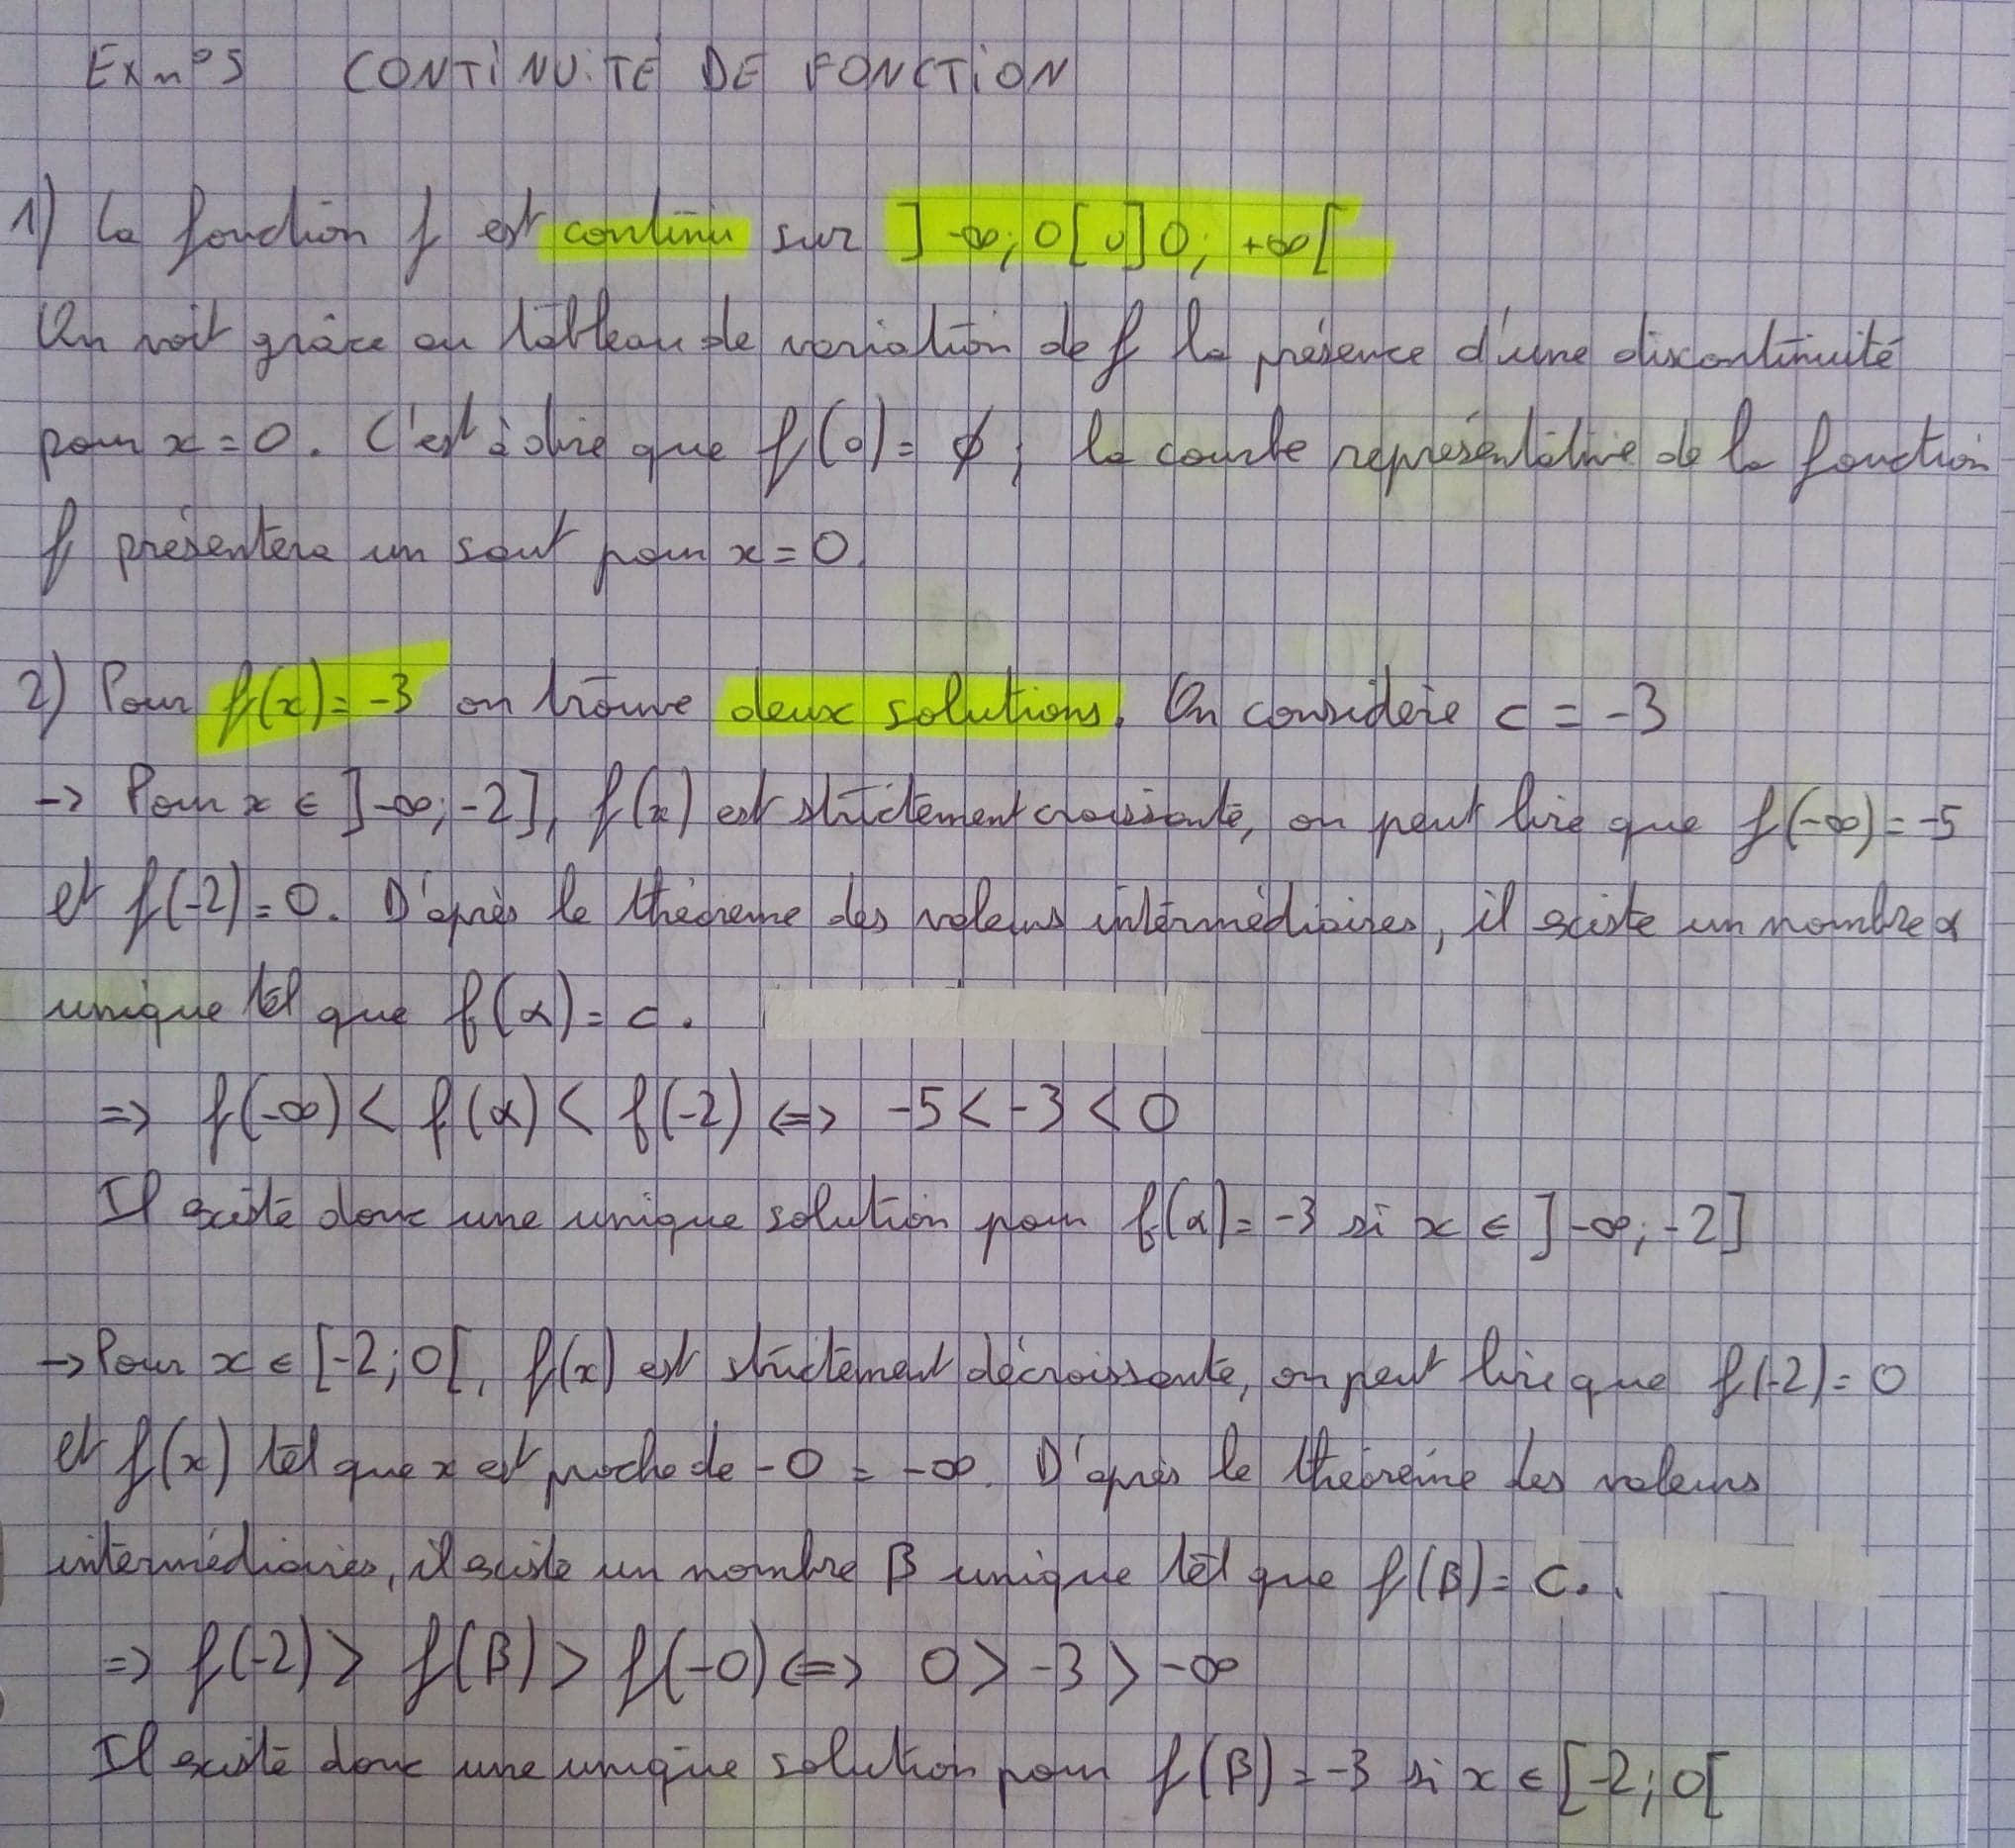 Ex n°5 CONTINUITÉ DE FONCTION
1) La fonction f est continu sur ]-∞; 0[ ∪ ]0; +∞[
On voit grâce au tableau de variation de f la présence d'une discontinuité
pour x = 0. C'est à dire que f(0) = ∅; la courbe représentative de la fonction
f présentera un saut pour x = 0.
2) Pour f(x) = -3 on trouve deux solutions. On considère c = -3
-> Pour x ∈ ]-∞; -2], f(x) est strictement croissante, on peut lire que f(-∞) = -5
et f(-2) = 0. D'après le théorème des valeurs intermédiaires, il existe un nombre α
unique tel que f(α) = c.
=> f(-∞) < f(α) < f(-2) <=> -5 < -3 < 0
Il existe donc une unique solution pour f(α) = -3 si x ∈ ]-∞; -2]
-> Pour x ∈ [-2; 0[, f(x) est strictement décroissante, on peut lire que f(-2) = 0
et f(x) tel que x est proche de -0 = -∞. D'après le théorème des valeurs
intermédiaires, il existe un nombre β unique tel que f(β) = c.
=> f(-2) > f(β) > f(-0) <=> 0 > -3 > -∞
Il existe donc une unique solution pour f(β) = -3 si x ∈ [-2; 0[